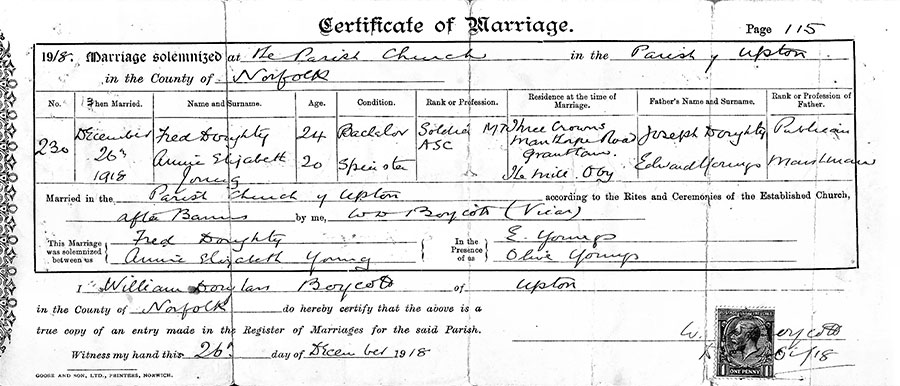 Certificate of Marriage.
Page 115
1918. Marriage solemnized at The Parish Church in the Parish of Upton
in the County of Norfolk
No. When Married. Name and Surname. Age. Condition. Rank or Profession. Residence at the time of Marriage. Father's Name and Surname. Rank or Profession of Father.
230 December 26th 1918
Fred Doughty 24 Bachelor Soldier MT ASC Three Crowns Manthorpe Road Grantham Joseph Doughty Publican
Annie Elizabeth Young 20 Spinster The Mill. Oby Edward Youngs Marshman
Married in the Parish Church of Upton according to the Rites and Ceremonies of the Established Church,
after Banns by me, W D Boycott (Vicar)
This Marriage was solemnized between us
Fred Doughty
Annie Elizabeth Young
In the Presence of us
E. Youngs
Olive Youngs
I William Douglas Boycott of Upton
in the County of Norfolk do hereby certify that the above is a
true copy of an entry made in the Register of Marriages for the said Parish.
W. Boycott
Witness my hand this 26th day of December 1918
ONE PENNY
GOOSE AND SON, LTD., PRINTERS, NORWICH.